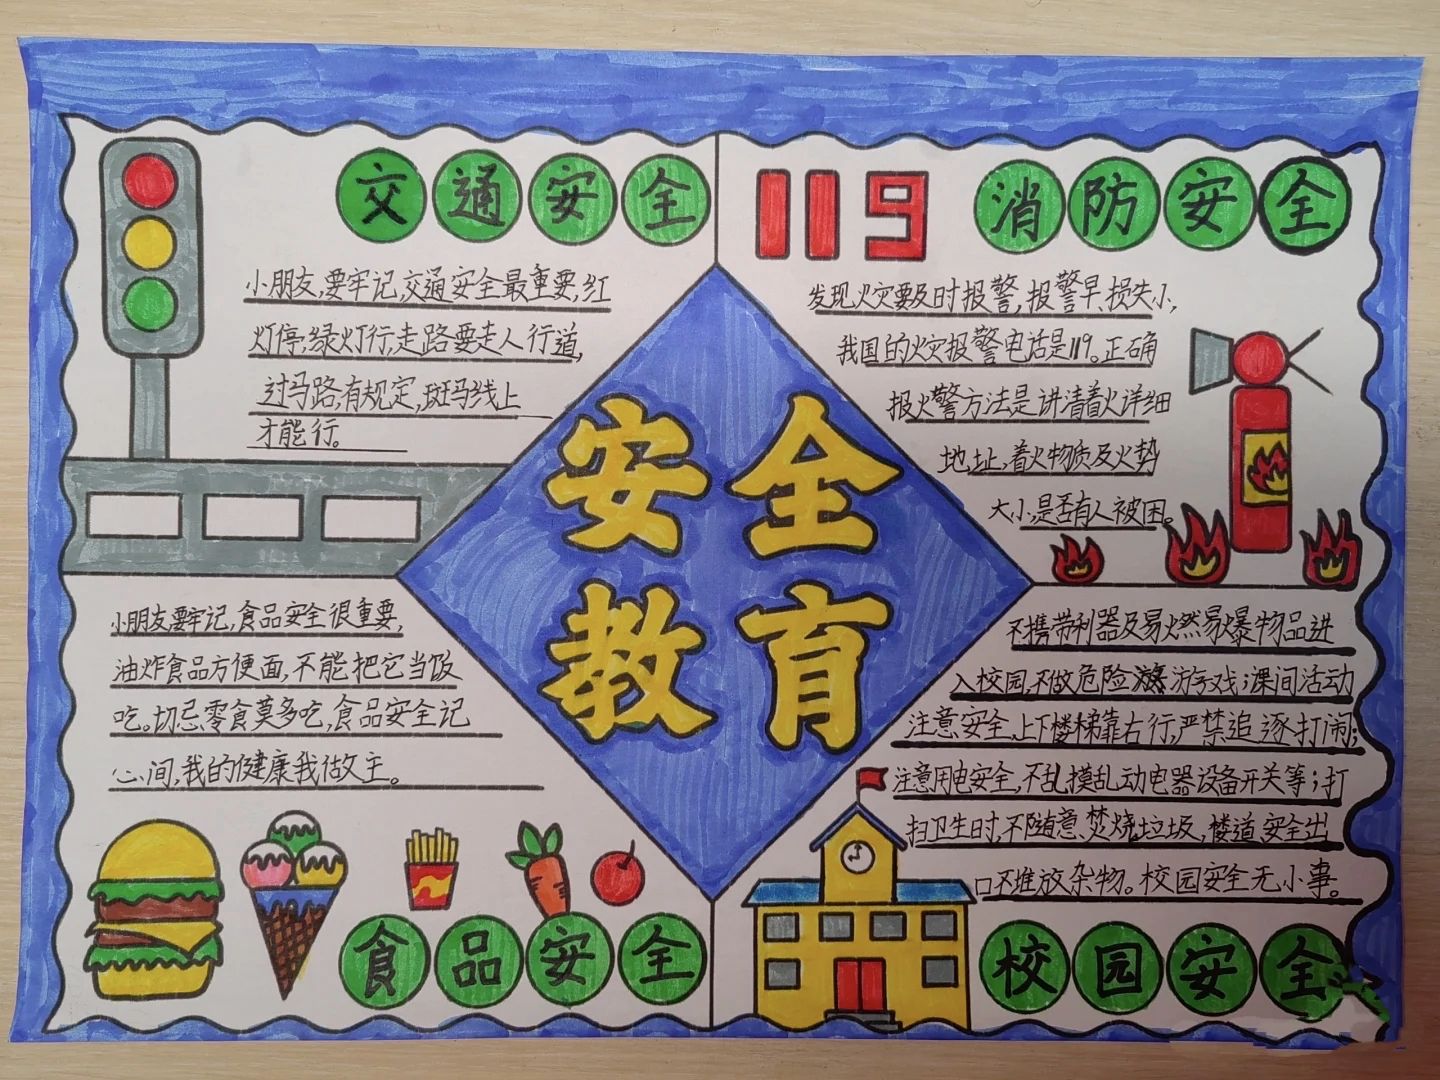 交通安全
小朋友,要牢记,交通安全最重要,红
灯停,绿灯行,走路要走人行道,
过马路,有规定,斑马线上
才能行。
119 消防安全
发现火灾要及时报警,报警早、损失小,
我国的火灾报警电话是119。正确
报火警方法是讲清着火详细
地址,着火物质及火势
大小,是否有人被困。
安全
教育
小朋友要牢记,食品安全很重要,
油炸食品方便面,不能把它当饭
吃。切忌零食莫多吃,食品安全记
心间,我的健康我做主。
食品安全
不携带利器及易火燃易爆物品进
入校园,不做危险游戏;课间活动
注意安全,上下楼梯靠右行,严禁追逐打闹;
注意用电安全,不乱摸乱动电器设备开关等;打
扫卫生时,不随意焚烧垃圾,楼道安全出
口不堆放杂物。校园安全无小事。
校园安全